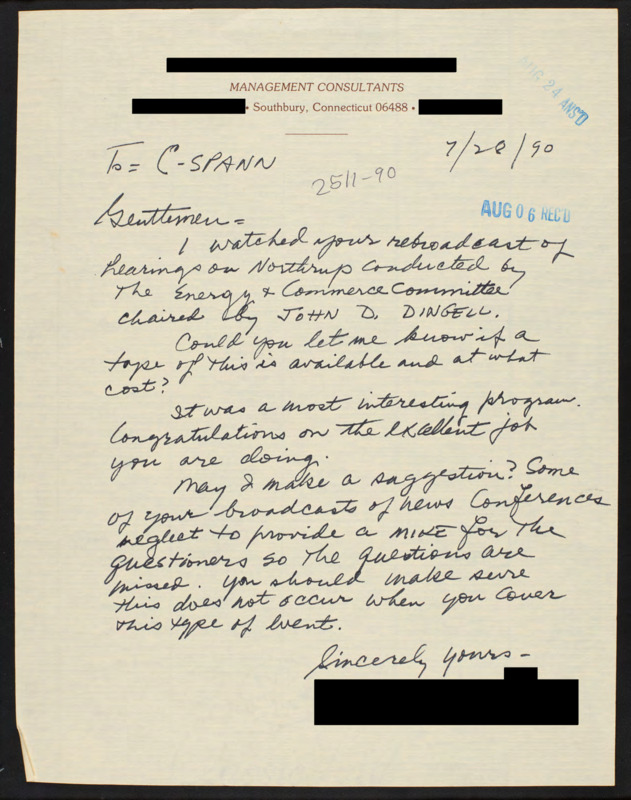 MANAGEMENT CONSULTANTS
• Southbury, Connecticut 06488 •
AUG 24 ANS'D
To = C-SPANN
7/28/90
2511-90
AUG 06 REC'D
Gentlemen =
I watched your rebroadcast of
hearings on Northrup conducted by
the Energy & Commerce Committee
chaired by JOHN D. DINGELL.
Could you let me know if a
tape of this is available and at what
cost?
It was a most interesting program.
Congratulations on the excellent job
you are doing.
May I make a suggestion? Some
of your broadcasts of news conferences
neglect to provide a MIKE for the
questioners so the questions are
missed. You should make sure
this does not occur when you cover
this type of event.
Sincerely yours -